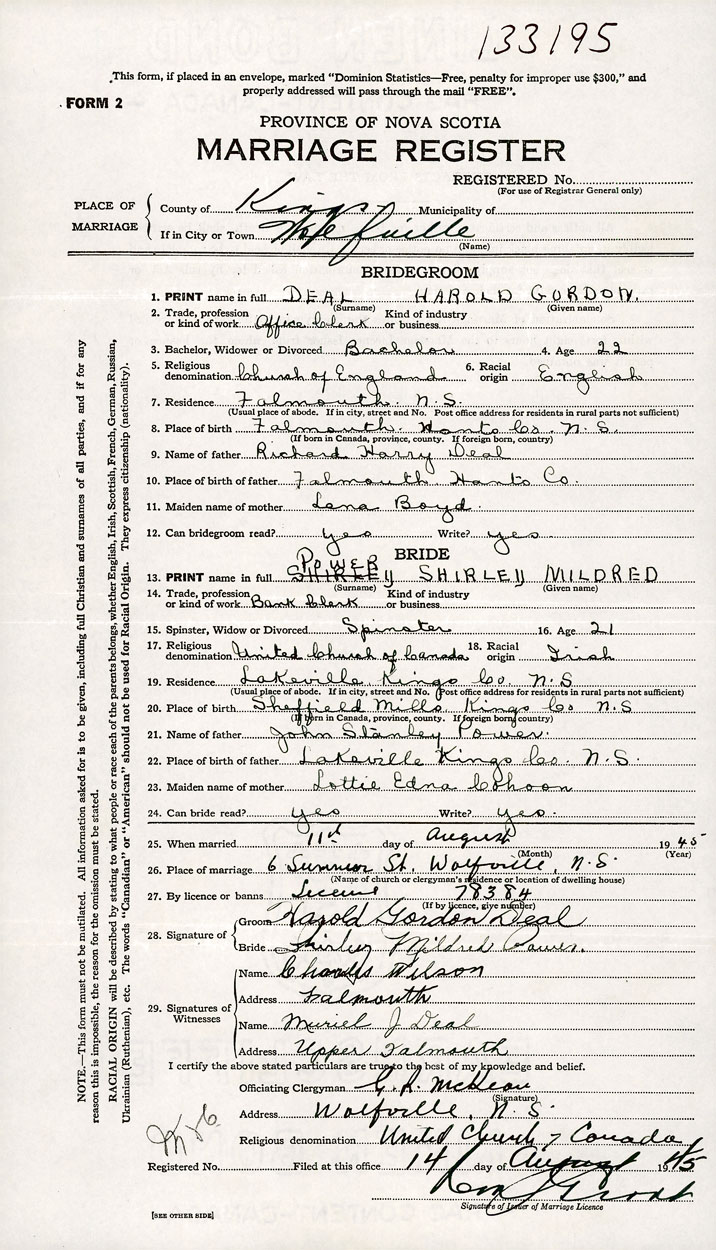 133195
This form, if placed in an envelope, marked "Dominion Statistics—Free, penalty for improper use $300," and
properly addressed will pass through the mail "FREE".
FORM 2
PROVINCE OF NOVA SCOTIA
MARRIAGE REGISTER
REGISTERED No.
(For use of Registrar General only)
PLACE OF MARRIAGE
County of Kings Municipality of
If in City or Town Wolfville
(Name)
BRIDEGROOM
1. PRINT name in full DEAL HAROLD GORDON.
(Surname) (Given name)
2. Trade, profession or kind of work Office Clerk Kind of industry or business
3. Bachelor, Widower or Divorced Bachelor 4. Age 22
5. Religious denomination Church of England 6. Racial origin English
7. Residence Falmouth. N.S.
(Usual place of abode. If in city, street and No. Post office address for residents in rural parts not sufficient)
8. Place of birth Falmouth. Hants Co. N.S.
(If born in Canada, province, county. If foreign born, country)
9. Name of father Richard Harry Deal
10. Place of birth of father Falmouth Hants Co.
11. Maiden name of mother Lena Boyd.
12. Can bridegroom read? yes Write? yes
BRIDE
POWER
13. PRINT name in full SHIRLEY SHIRLEY MILDRED
(Surname) (Given name)
14. Trade, profession or kind of work Bank Clerk Kind of industry or business
15. Spinster, Widow or Divorced Spinster 16. Age 21
17. Religious denomination United Church of Canada 18. Racial origin Irish
19. Residence Lakeville Kings Co. N.S
(Usual place of abode. If in city, street and No. Post office address for residents in rural parts not sufficient)
20. Place of birth Sheffield Mills Kings Co N.S
(If born in Canada, province, county. If foreign born country)
21. Name of father John Stanley Power.
22. Place of birth of father Lakeville Kings Co. N.S.
23. Maiden name of mother Lottie Edna Cohoon
24. Can bride read? yes Write? yes.
25. When married 11th day of August 1945
(Month) (Year)
26. Place of marriage 6 Summer St. Wolfville, N.S.
(Name of church or clergyman's residence or location of dwelling house)
27. By licence or banns License 78384
(If by licence, give number)
28. Signature of
Groom Harold Gordon Deal
Bride Shirley Mildred Power.
29. Signatures of Witnesses
Name Charles Wilson
Address Falmouth
Name Muriel J Deal
Address Upper Falmouth
I certify the above stated particulars are true to the best of my knowledge and belief.
Officiating Clergyman G. R. McKean
(Signature)
Address Wolfville, N.S.
Religious denomination United Church of Canada
Registered No. Filed at this office 14 day of August 1945
Signature of Issuer of Marriage Licence
[SEE OTHER SIDE]
NOTE.—This form must not be mutilated. All information asked for is to be given, including full Christian and surnames of all parties, and if for any
reason this is impossible, the reason for the omission must be stated.
RACIAL ORIGIN will be described by stating to what people or race each of the parents belongs, whether English, Irish, Scottish, French, German, Russian,
Ukrainian (Ruthenian), etc. The words "Canadian" or "American" should not be used for Racial Origin. They express citizenship (nationality).